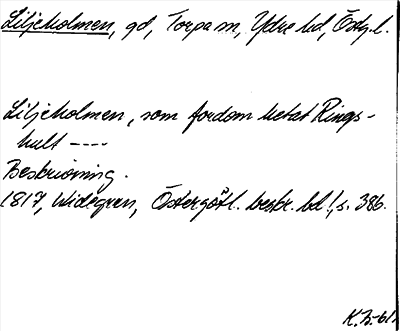 Liljeholmen, gd, Torpa sn, Ydre hd, Östg.l.
Liljeholmen, som fordom hetat Rings-
hult ----
Beskrivning.
1817, Widegren, Östergötl. beskr. bd 1, s. 386.
K.B-61